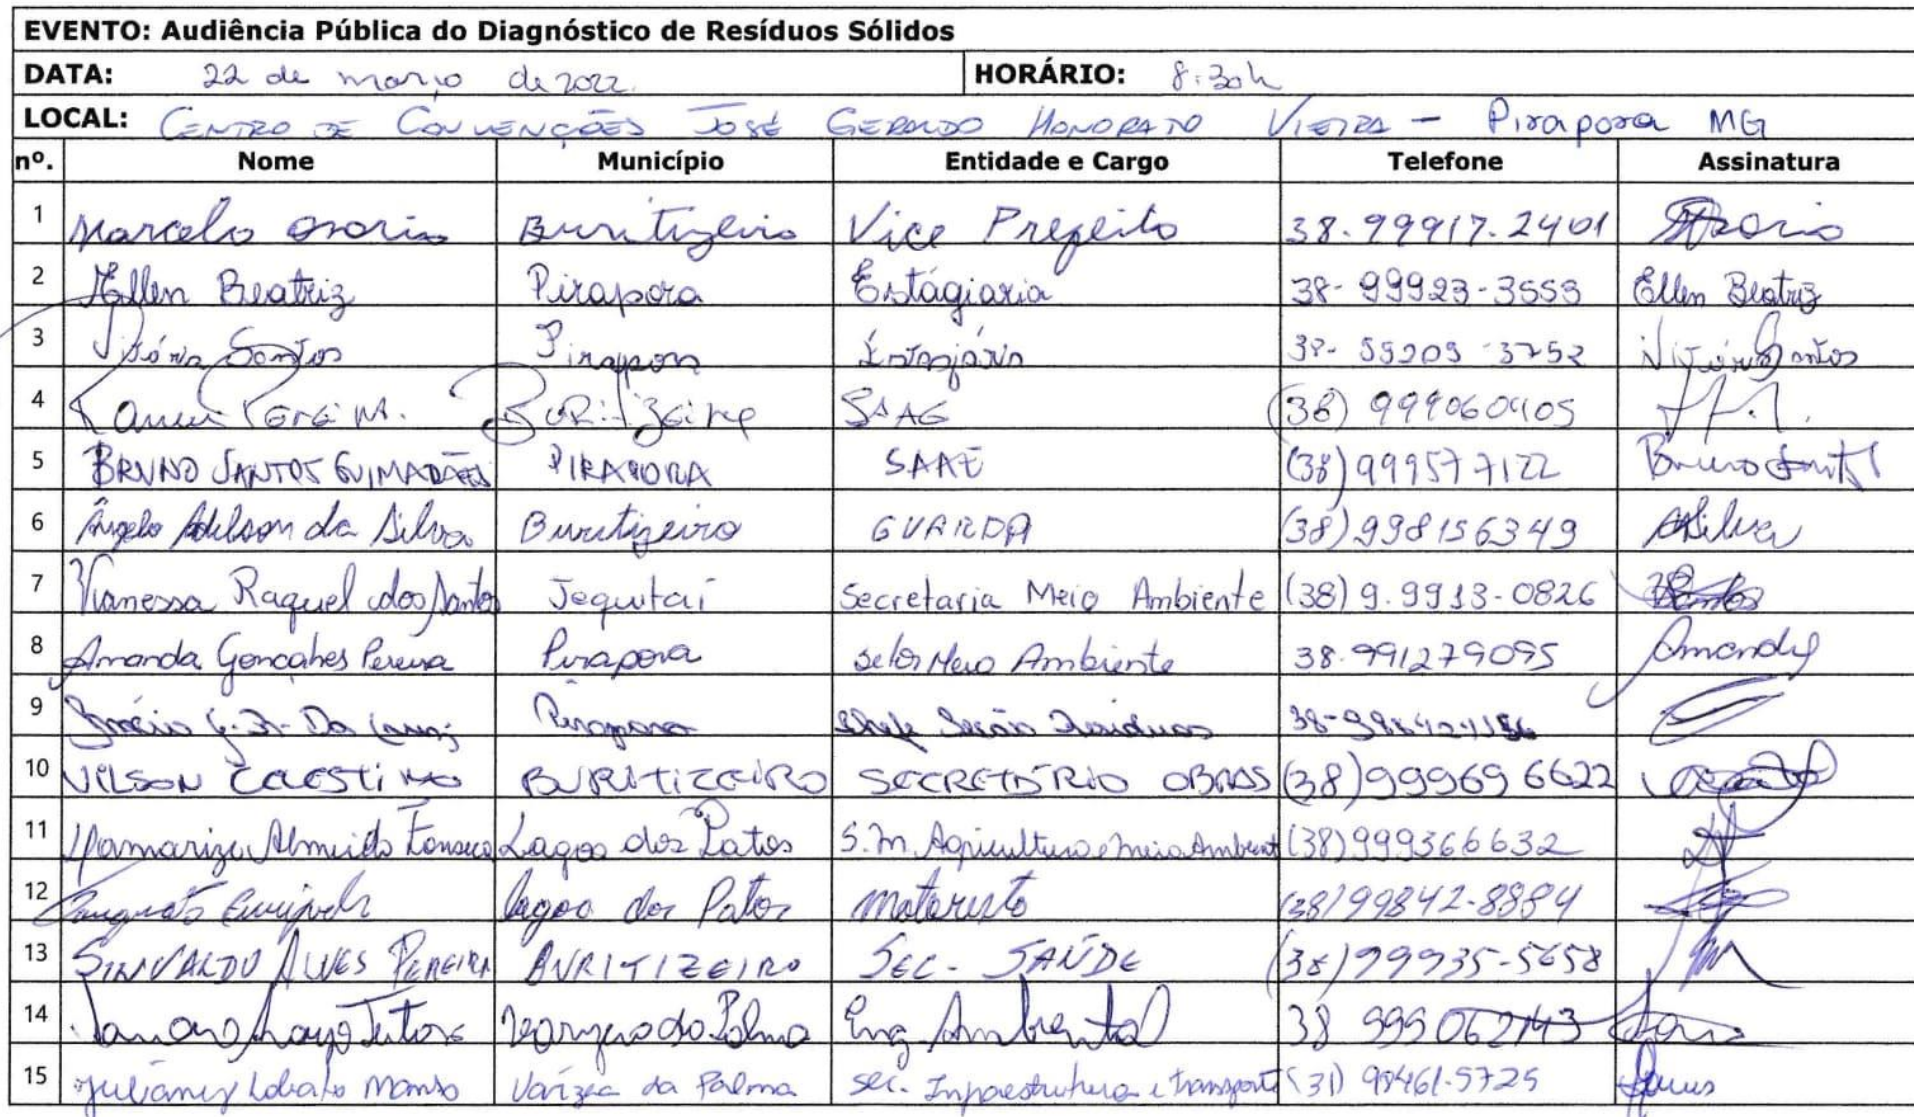 EVENTO: Audiência Pública do Diagnóstico de Resíduos Sólidos
DATA: 22 de março de 2022. HORÁRIO: 8:30h
LOCAL: CENTRO DE CONVENÇÕES JOSÉ GERALDO HONORATO VIEIRA - Pirapora MG
nº. Nome Município Entidade e Cargo Telefone Assinatura
1 Marcelo Osorio Buritizeiro Vice Prefeito 38-99917-2401
2 Ellen Beatriz Pirapora Estágiaria 38-99923-3553 Ellen Beatriz
3 Vitória Santos Pirapora Estagiária Vitória Santos
4 Buritizeiro SAAE
5 BRUNO SANTOS GUIMARÃES PIRAPORA SAAE (38) 999577122 Bruno
6 Ângelo Adilson da Silva Buritizeiro GUARDA (38) 998156349 ASilva
7 Vanessa Raquel dos Santos Jequitaí Secretaria Meio Ambiente (38) 9.9913-0826
8 Amanda Gonçalves Pereira Pirapora setor Meio Ambiente 38-991279095 Amanda
9 Pirapora Chefe Seção Resíduos
10 VILSON CELESTINO BURITIZEIRO SECRETÁRIO OBRAS (38) 99969 6622
11 Almeida Fonseca Lagoa dos Patos S.M. Agricultura e meio Ambient (38) 999366632
12 Lagoa dos Patos motorista (38) 99842-8884
13 SINVALDO ALVES PEREIRA BURITIZEIRO SEC. SAÚDE (38) 99935-5658
14 Varzea da Palma Eng. Ambiental 38 999062143
15 Lobato Manso Varzea da Palma Sec. Infraestrutura e transporte (31) 98461-5725